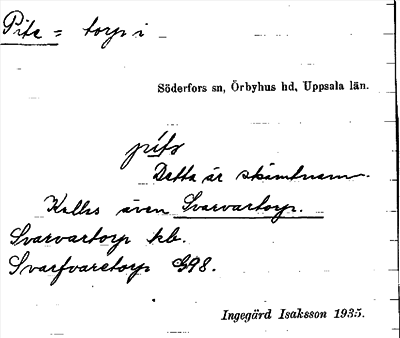 Pite = torp i
Söderfors sn, Örbyhus hd, Uppsala län.
Detta är skämtnamn.
Kallas även Svarvartorp.
Svarvartorp kb.
Svarfvaretorp G98.
Ingegörd Isaksson 1935.